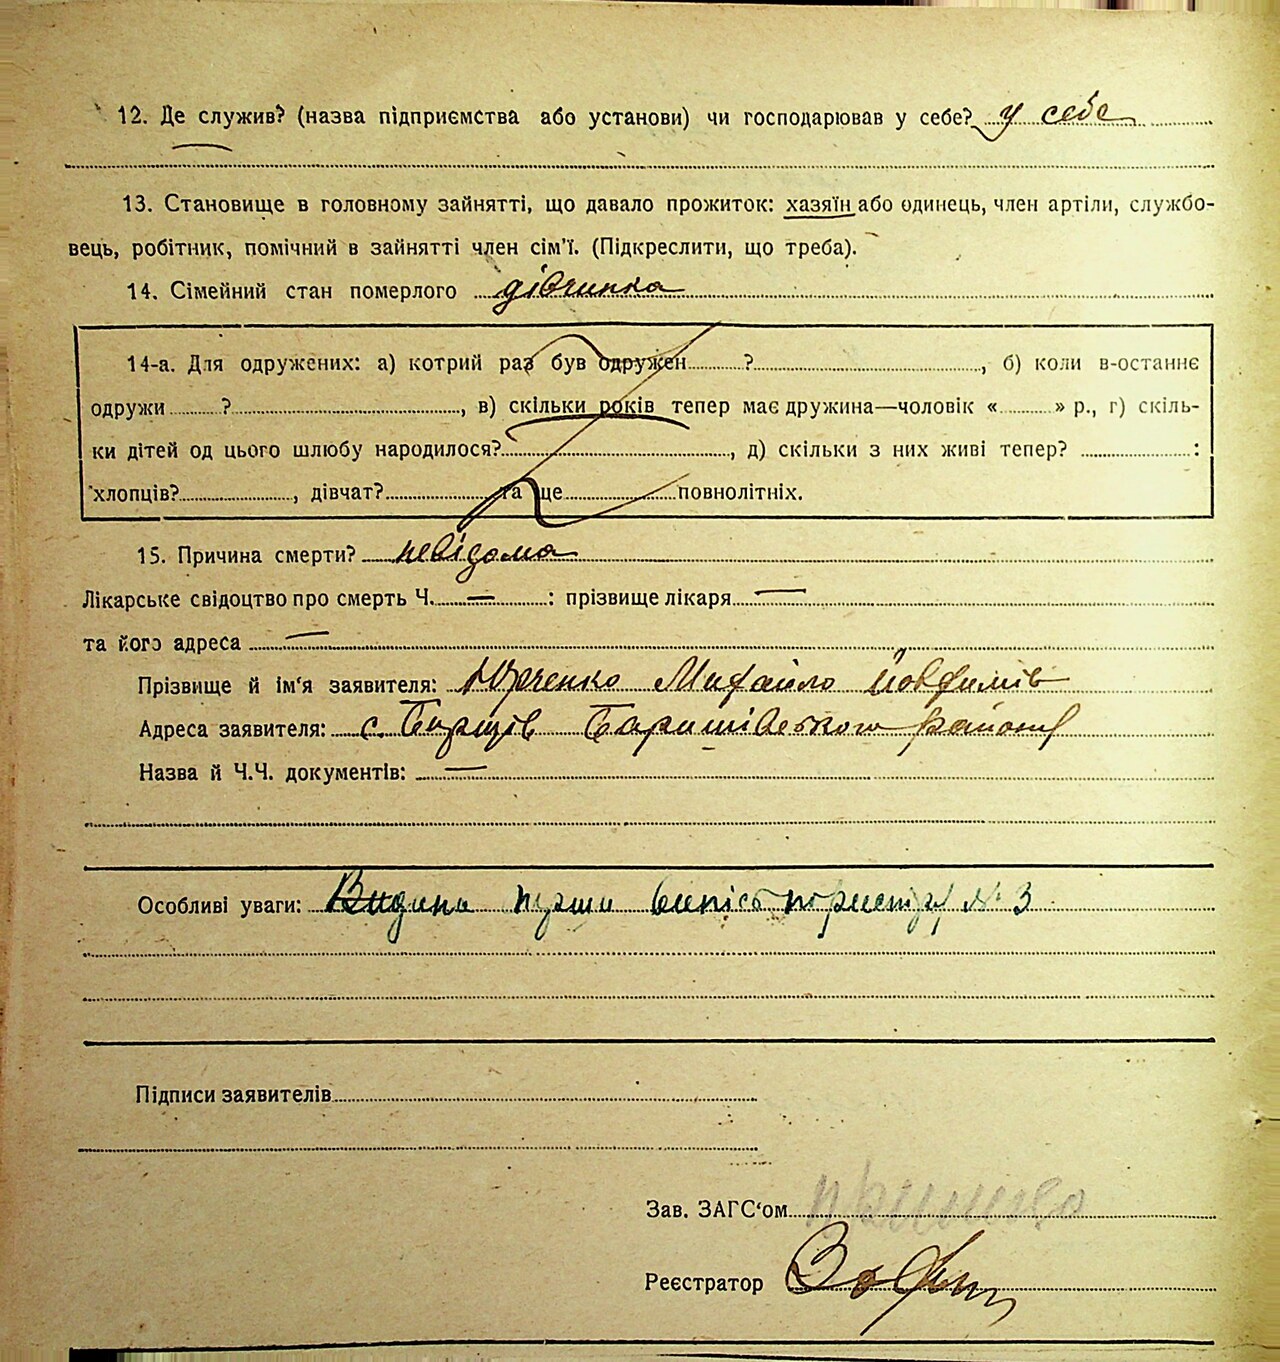 12. Де служив? (назва підприємства або установи) чи господарював у себе? у себе
13. Становище в головному зайнятті, що давало прожиток: хазяїн або одинець, член артіли, службо-
вець, робітник, помічний в зайнятті член сім'ї. (Підкреслити, що треба).
14. Сімейний стан померлого дівчинка
14-а. Для одружених: а) котрий раз був одружен ? , б) коли в-останнє
одружи ? , в) скільки років тепер має дружина—чоловік « » р., г) скіль-
ки дітей од цього шлюбу народилося? , д) скільки з них живі тепер? :
хлопців? , дівчат? та ще повнолітніх.
15. Причина смерти? невідома
Лікарське свідоцтво про смерть Ч. — : прізвище лікаря —
та його адреса —
Прізвище й ім'я заявителя: Юрченко Михайло Йовдимів
Адреса заявителя: с. Борщів Баришівського району
Назва й Ч.Ч. документів: —
Особливі уваги: Видана перша випись по реєстру № 3
Підписи заявителів
Зав. ЗАГС'ом
Реєстратор